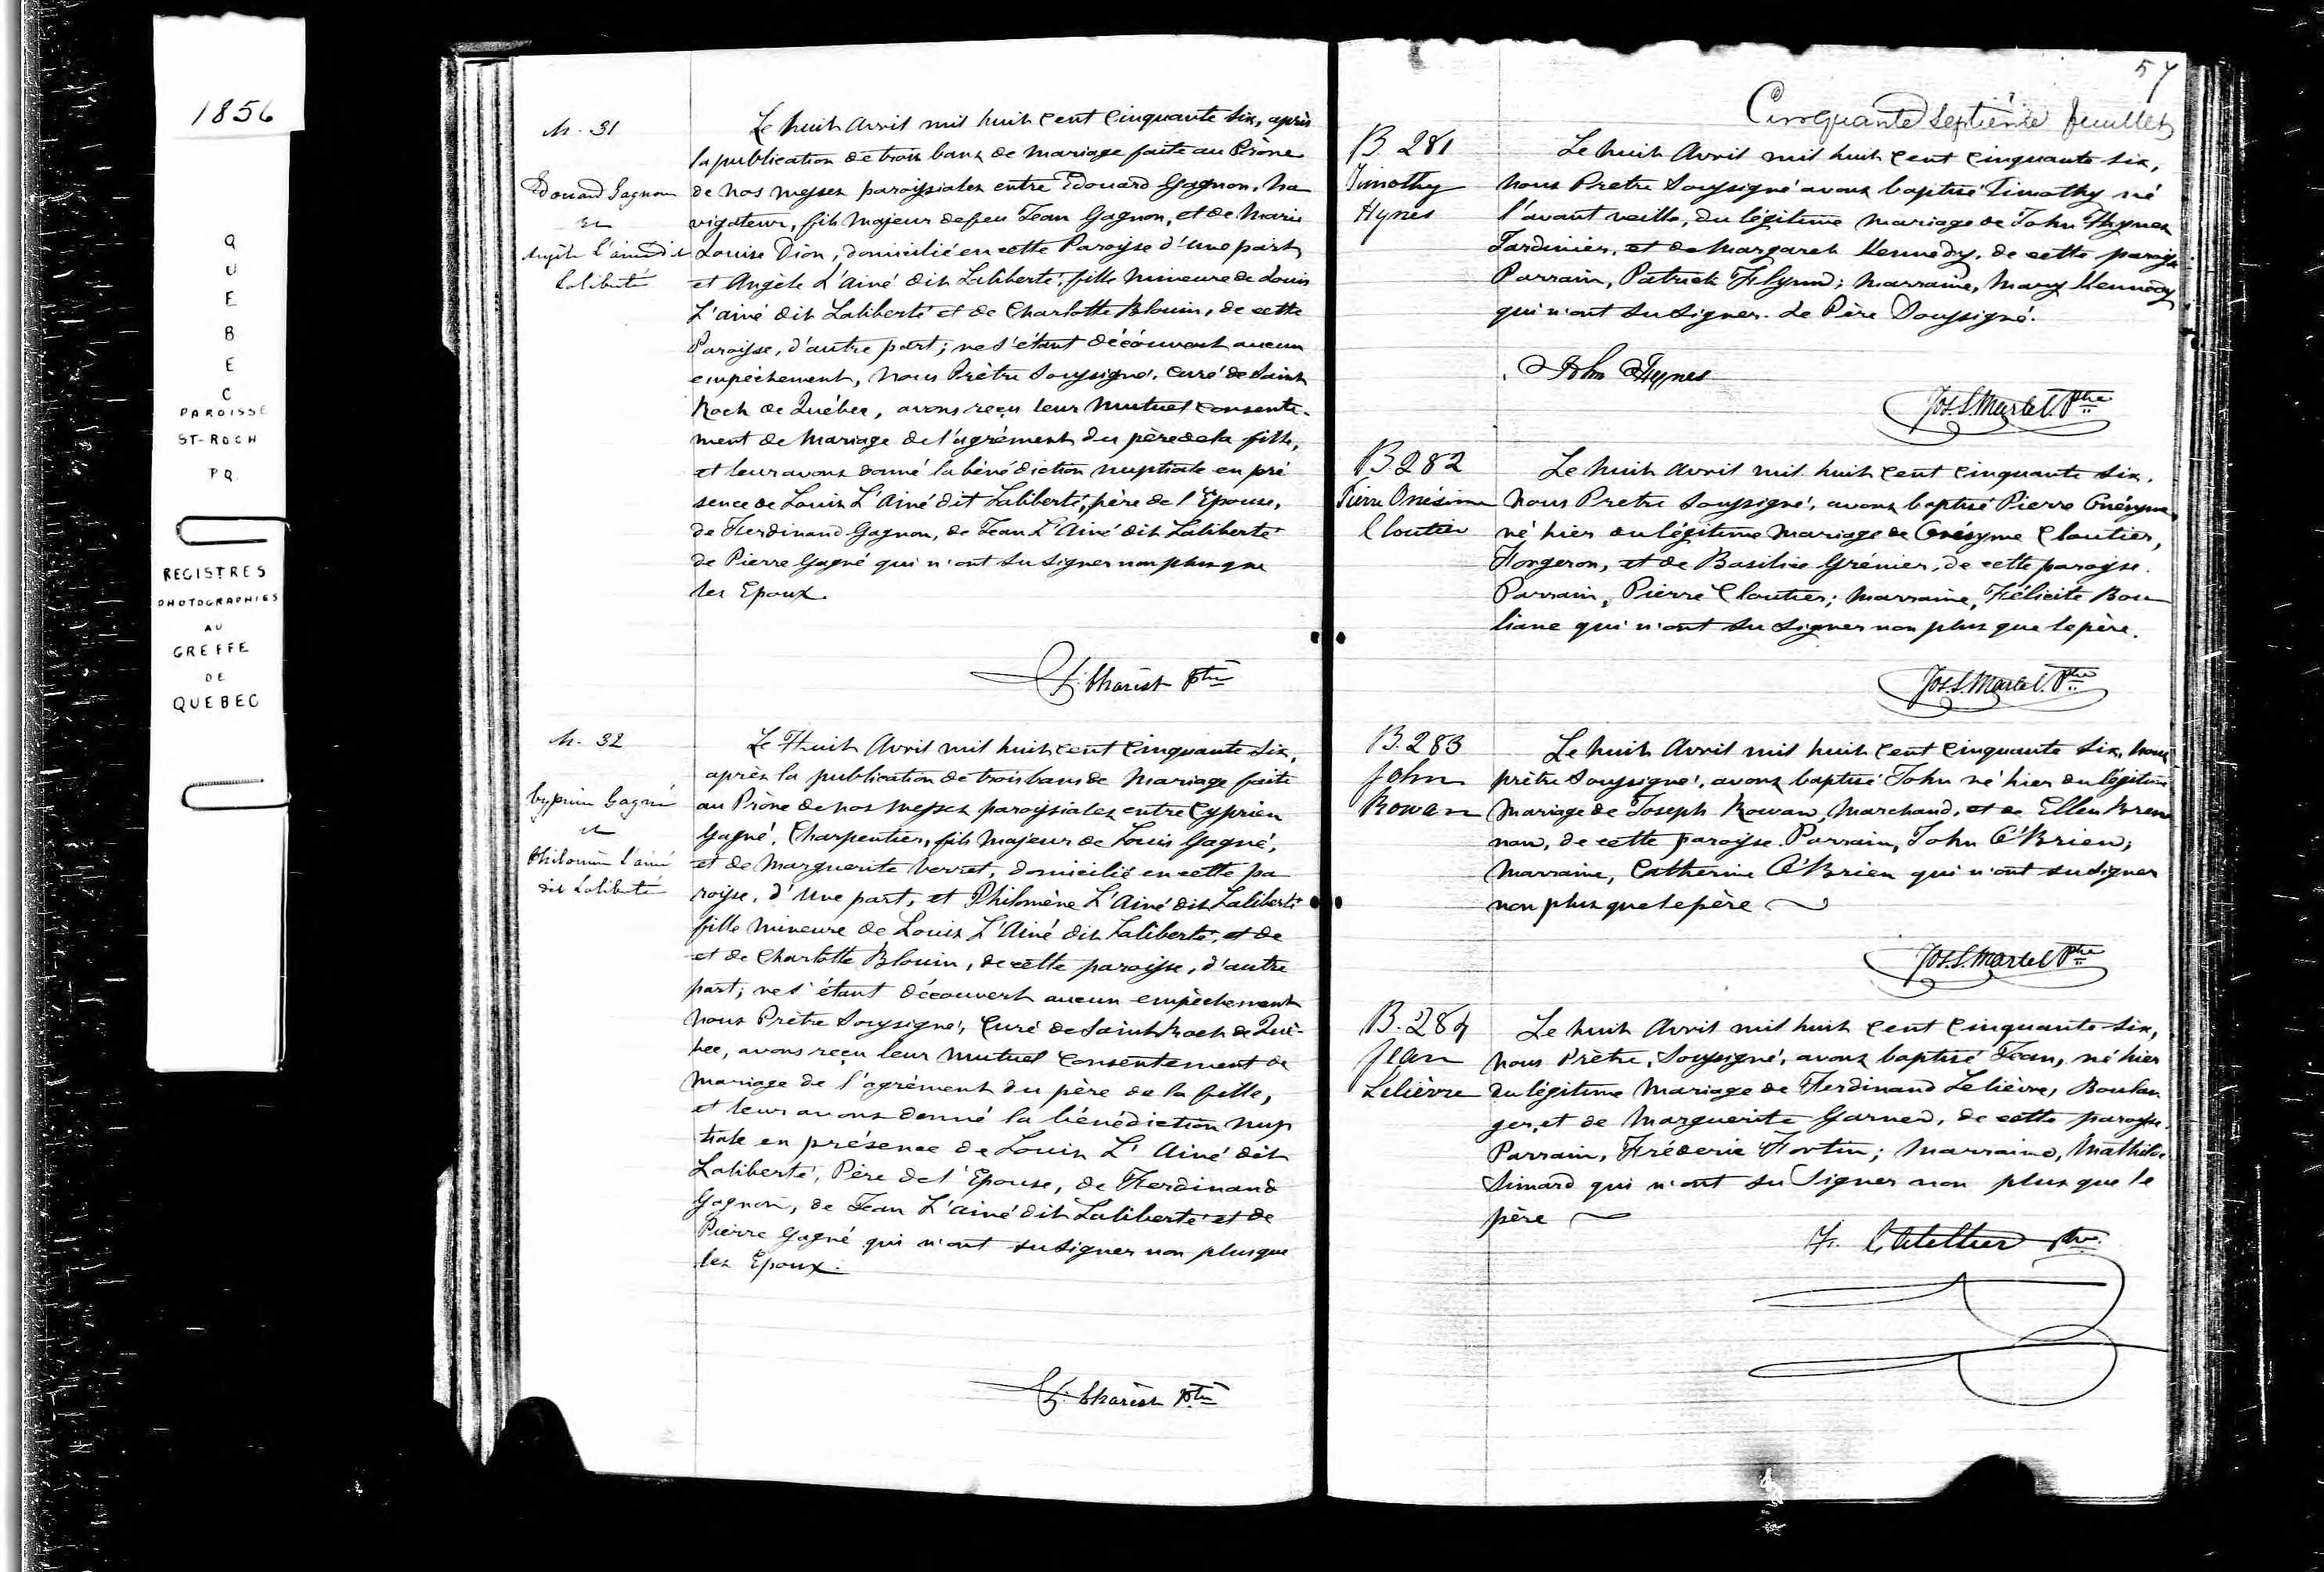 1856
QUEBEC
PAROISSE
ST-ROCH
PQ
REGISTRES
PHOTOGRAPHIES
AU
GREFFE
DE
QUEBEC
M. 31
Edouard Gagnon
et
Angèle L'ainé dit
Laliberté
Le huit Avril mil huit cent cinquante six, après
la publication de trois bans de mariage faite au Prône
de nos messes paroissiales entre Edouard Gagnon, na
vigateur, fils majeur de feu Jean Gagnon, et de Marie
Louise Dion, domicilié en cette Paroisse d'une part
et Angèle L'Ainé dit Laliberté, fille mineure de Louis
L'ainé dit Laliberté et de Charlotte Blouin, de cette
Paroisse, d'autre part; ne s'étant découvert aucun
empêchement, nous Prêtre Soussigné, curé de Saint
Roch de Québec, avons reçu leur mutuel consente-
ment de mariage de l'agrément du père de la fille,
et leur avons donné la bénédiction nuptiale en pré
sence de Louis L'Ainé dit Laliberté, père de l'Epouse,
de Ferdinand Gagnon, de Jean L'Ainé dit Laliberté
de Pierre Gagné qui n'ont su signer non plus que
les Epoux.
Z. Charest Ptre
M. 32
Cyprien Gagné
et
Philomène L'ainé
dit Laliberté
Le Huit Avril mil huit cent cinquante six,
après la publication de trois bans de mariage faite
au Prône de nos messes paroissiales entre Cyprien
Gagné, Charpentier, fils majeur de Louis Gagné,
et de Marguerite Verret, domicilié en cette pa
roisse, d'une part, et Philomène L'Ainé dit Laliberté
fille mineure de Louis L'Ainé dit Laliberté, et de
et de Charlotte Blouin, de cette paroisse, d'autre
part; ne s'étant découvert aucun empêchement
nous Prêtre Soussigné, Curé de Saint Roch de Qué-
bec, avons reçu leur mutuel consentement de
mariage de l'agrément du père de la fille,
et leur avons donné la bénédiction nup
tiale en présence de Louis L'Ainé dit
Laliberté, Père de l'Epouse, de Ferdinand
Gagnon, de Jean L'ainé dit Laliberté et de
Pierre Gagné qui n'ont su signer non plus que
les Epoux.
Z. Charest Ptre
57
Cinquante Septième feuillet
B. 281
Timothy
Hynes
Le huit Avril mil huit cent cinquante six,
nous Prêtre Soussigné avons baptisé Timothy né
l'avant veille, du légitime mariage de John Hynes
Jardinier, et de Margaret Kennedy, de cette paroisse
Parrain, Patrick Flynn; marraine, Mary Kennedy
qui n'ont su signer. Le Père Soussigné.
John Hynes
Jos. S. Martel. Ptre
B. 282
Pierre Onésime
Cloutier
Le huit Avril mil huit cent cinquante six.
nous Prêtre soussigné, avons baptisé Pierre Onésyme
né hier du légitime mariage de Onésyme Cloutier,
Forgeron, et de Basilice Grénier, de cette paroisse.
Parrain, Pierre Cloutier; marraine, Félicité Bou
liane qui n'ont su signer non plus que le père.
Jos. S. Martel. Ptre
B. 283
John
Rowan
Le huit Avril mil huit cent cinquante six, nous
prêtre soussigné, avons baptisé John né hier du légitime
mariage de Joseph Rowan, Marchand, et de Ellen Bren
nan, de cette paroisse. Parrain, John O'Brien;
marraine, Catherine O'Brien qui n'ont su signer
non plus que le père
Jos. S. Martel Ptre
B. 284
Jean
Lelièvre
Le huit Avril mil huit cent cinquante six,
nous Prêtre, Soussigné, avons baptisé Jean, né hier
du légitime mariage de Ferdinand Lelièvre, Boulan
ger, et de Marguerite Garned, de cette paroisse.
Parrain, Fréderic Fortin; marraine, Mathilde
Simard qui n'ont su signer non plus que le
père
Ptre